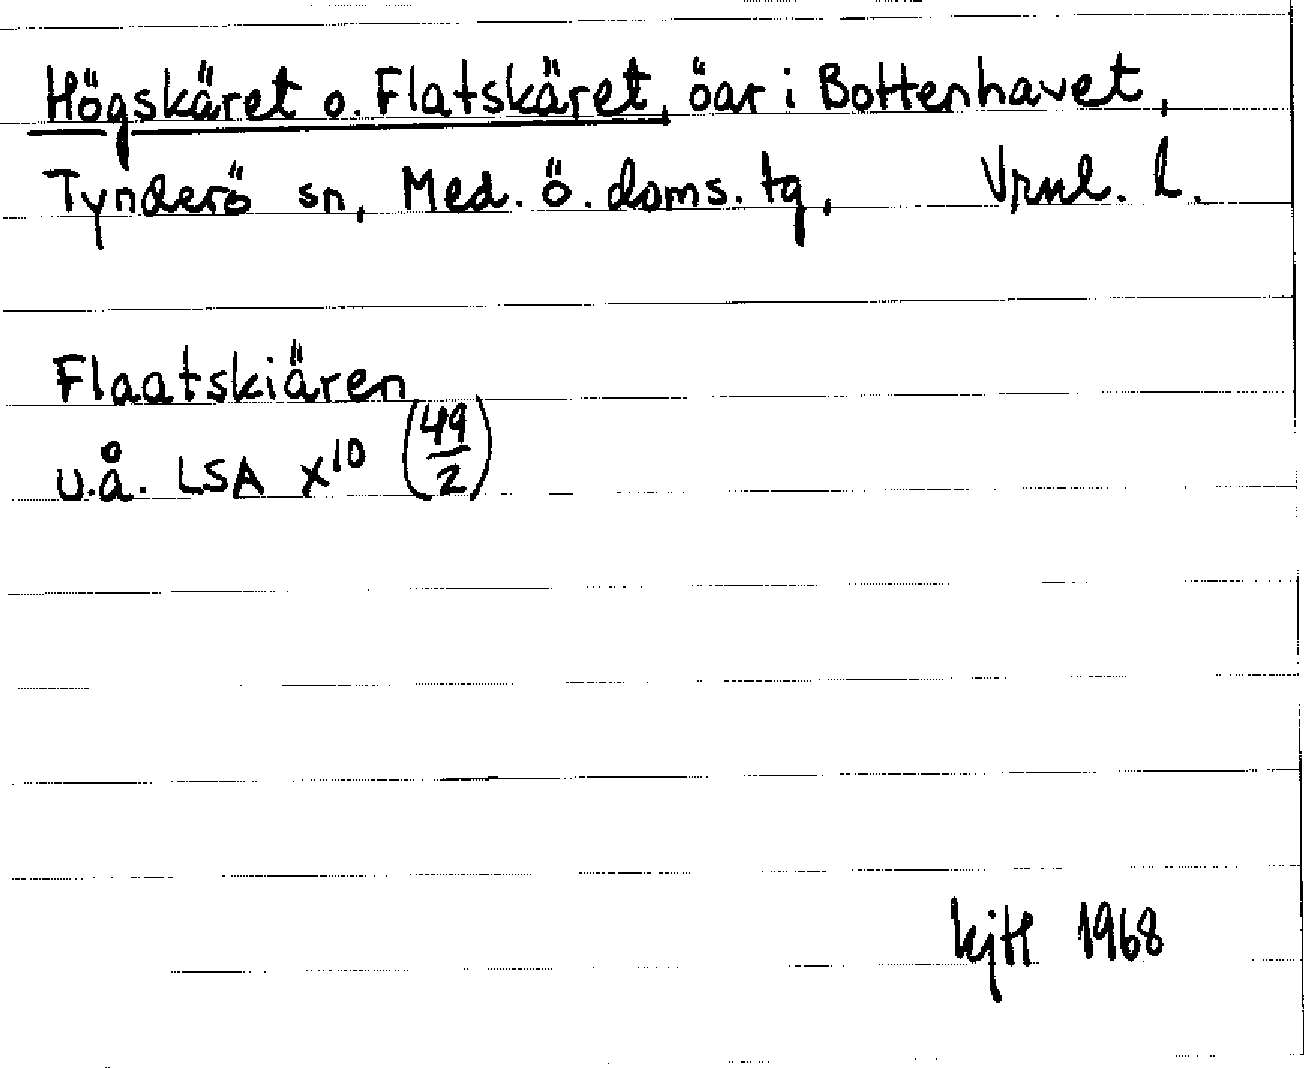 Högskäret o. Flatskäret, öar i Bottenhavet,
Tynderö sn, Med. ö. doms. tg, Vrnl. l.
Flaatskiären
u.å. LSA X¹⁰ (49/2)
1968